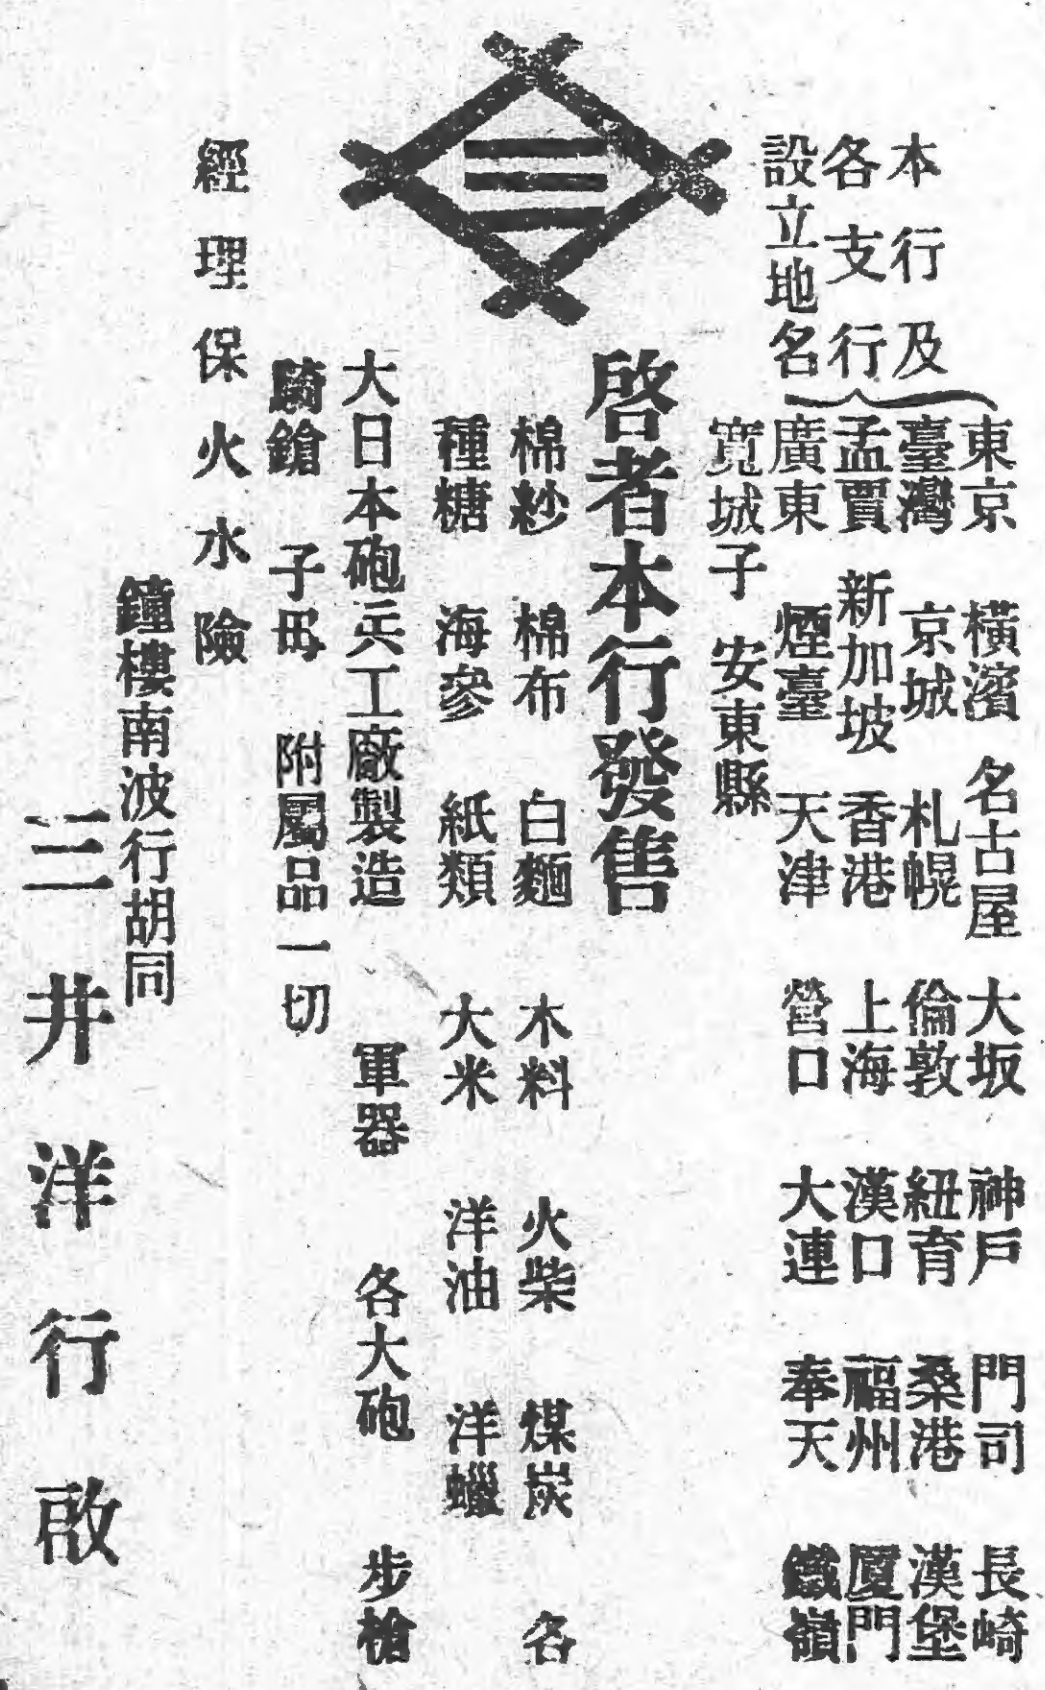 本行及
各支行
設立地名
東京 橫濱 名古屋 大坂 神戶 門司 長崎
臺灣 京城 札幌 倫敦 紐育 桑港 漢堡
孟買 新加坡 香港 上海 漢口 福州 厦門
廣東 煙臺 天津 營口 大連 奉天 鐵嶺
寬城子 安東縣
啓者本行發售
棉紗 棉布 白麵 木料 火柴 煤炭 各
種糖 海參 紙類 大米 洋油 洋蠟
大日本砲兵工廠製造 軍器 各大砲 步槍
騎鎗 子毋 附屬品一切
經理保火水險
鐘樓南波行胡同
三井洋行啟